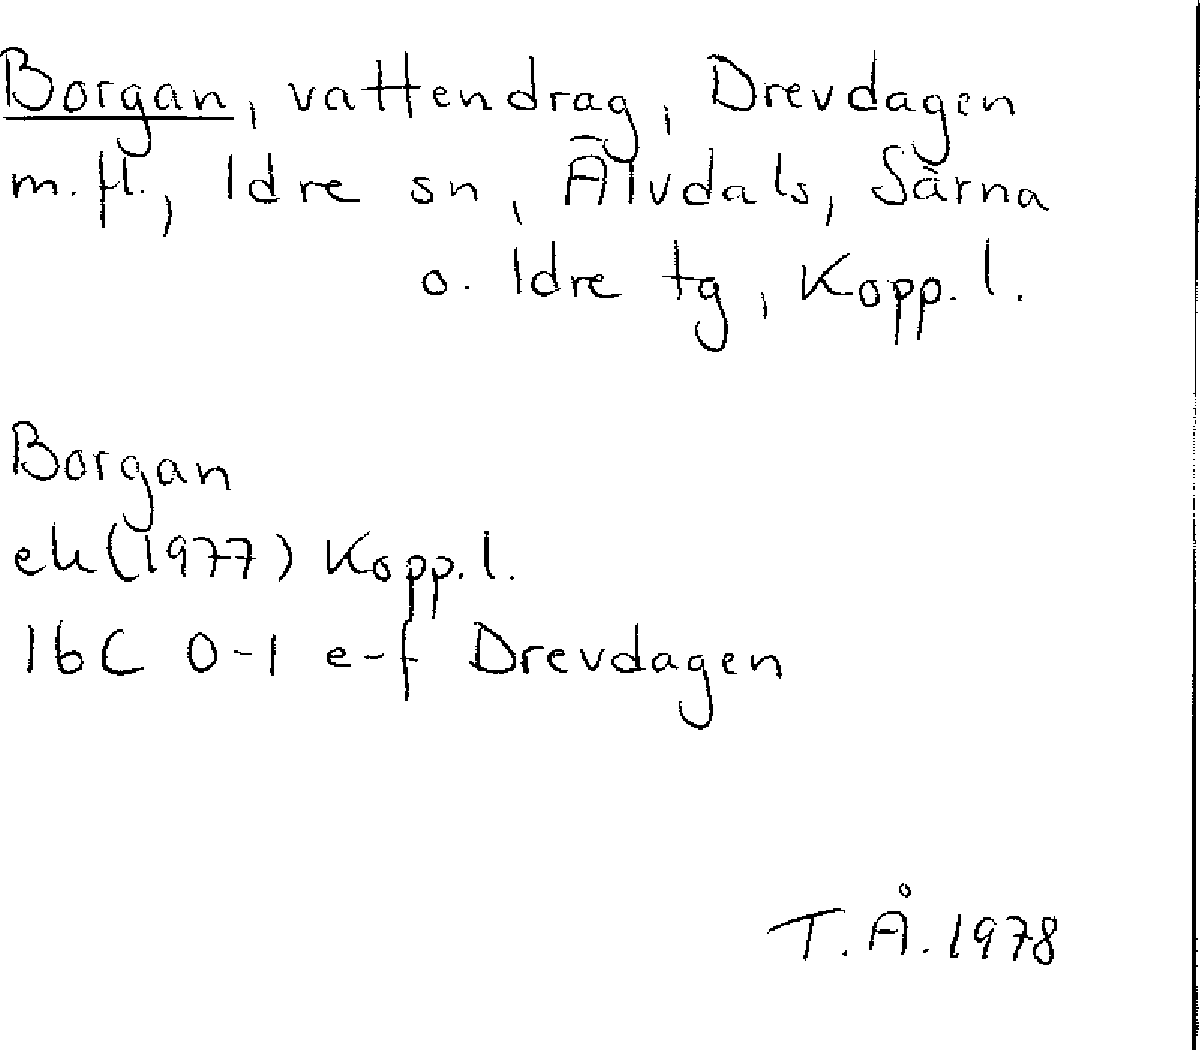 Borgan, vattendrag, Drevdagen
m. fl., Idre sn, Älvdals, Särna
o. Idre tg, Kopp. l.
Borgan
ek (1977) Kopp. l.
16C 0-1 e-f Drevdagen
T. Å. 1978